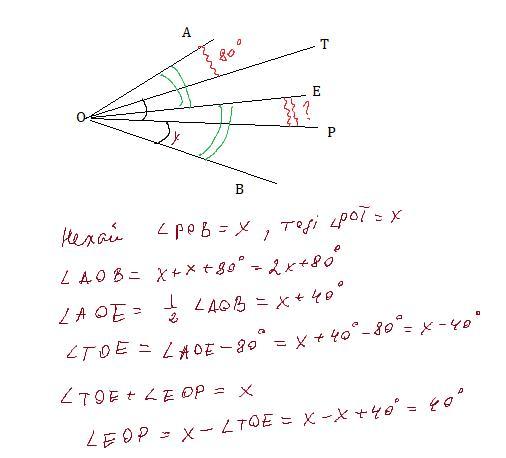 A
80°
T
O
E
?
P
x
B
Нехай ∠POB = x, тоді ∠POT = x
∠AOB = x + x + 80° = 2x + 80°
∠AOE = 1/2 ∠AOB = x + 40°
∠TOE = ∠AOE - 80° = x + 40° - 80° = x - 40°
∠TOE + ∠EOP = x
∠EOP = x - ∠TOE = x - x + 40° = 40°